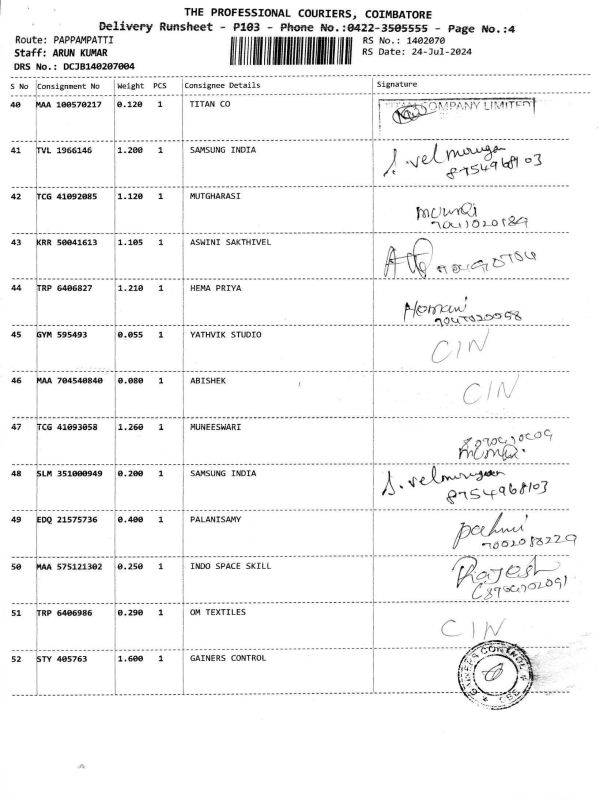 THE PROFESSIONAL COURIERS, COIMBATORE
Delivery Runsheet - P103 - Phone No.:0422-3505555 - Page No.:4
Route: PAPPAMPATTI RS No.: 1402070
Staff: ARUN KUMAR RS Date: 24-Jul-2024
DRS No.: DCJB140207004
S No Consignment No Weight PCS Consignee Details Signature
40 MAA 100570217 0.120 1 TITAN CO TITAN COMPANY LIMITED
41 TVL 1966146 1.200 1 SAMSUNG INDIA S. velmurugan
8754968103
42 TCG 41092085 1.120 1 MUTGHARASI
43 KRR 50041613 1.105 1 ASWINI SAKTHIVEL
44 TRP 6406827 1.210 1 HEMA PRIYA
45 GYM 595493 0.055 1 YATHVIK STUDIO CIN
46 MAA 704540840 0.080 1 ABISHEK CIN
47 TCG 41093058 1.260 1 MUNEESWARI
48 SLM 351000949 0.200 1 SAMSUNG INDIA S. velmurugan
8754968103
49 EDQ 21575736 0.400 1 PALANISAMY
50 MAA 575121302 0.250 1 INDO SPACE SKILL Rajesh
51 TRP 6406986 0.290 1 OM TEXTILES CIN
52 STY 405763 1.600 1 GAINERS CONTROL GAINERS CONTROL